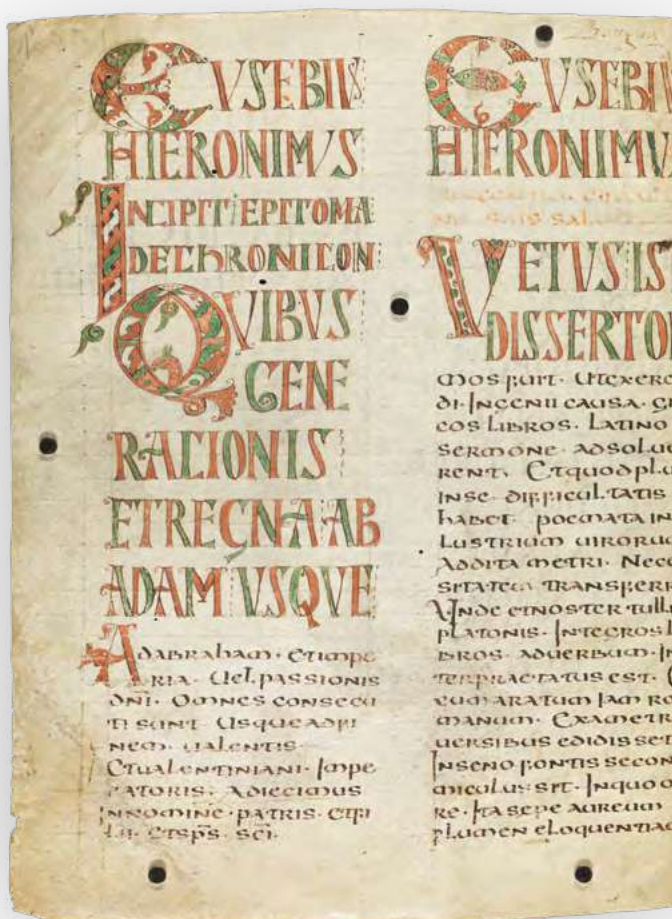 EVSEBIVS
HIERONIMVS
INCIPIT EPITOMA
DECHRONICON
QVIBVS
GENE
RACIONIS
ETREGNA AB
ADAM VSQVE
ADABRAHAM· ETIMPE
RIA· UEL PASSIONIS
DNI· OMNES CONSECU
TI SUNT USQUE ADFI
NEM· UALENTIS
ETUALENTINIANI· IMPE
RATORIS· ADIECIMUS
INNOMINE· PATRIS· ETFI
LII· ETSPS· SCI·
EVSEBIV
HIERONIMV
VETVS IS
DISSERTO
MOS FUIT· UTEXERC
DI· INGENII CAUSA· G
COS LIBROS· LATINO
SERMONE· ADSOLUE
RENT· ETQUODPLU
INSE· DIFFICULTATIS
HABET· POEMATA IN
LUSTRIUM UIRORU
ADDITA METRI· NECE
SITATEM TRANSFERR
UNDE ETNOSTER TULL
PLATONIS· INTEGROS L
BROS· ADUERBUM· IN
TERPRAETATUS EST·
CUM ARATUM IAM RO
MANUM· EXAMETR
UERSIBUS EDIDISSET
INSENOFONTIS SECON
MICULUS SIT· INQUO
RE· ITA SEPE AUREUM
FLUMEN ELOQUENTIAE